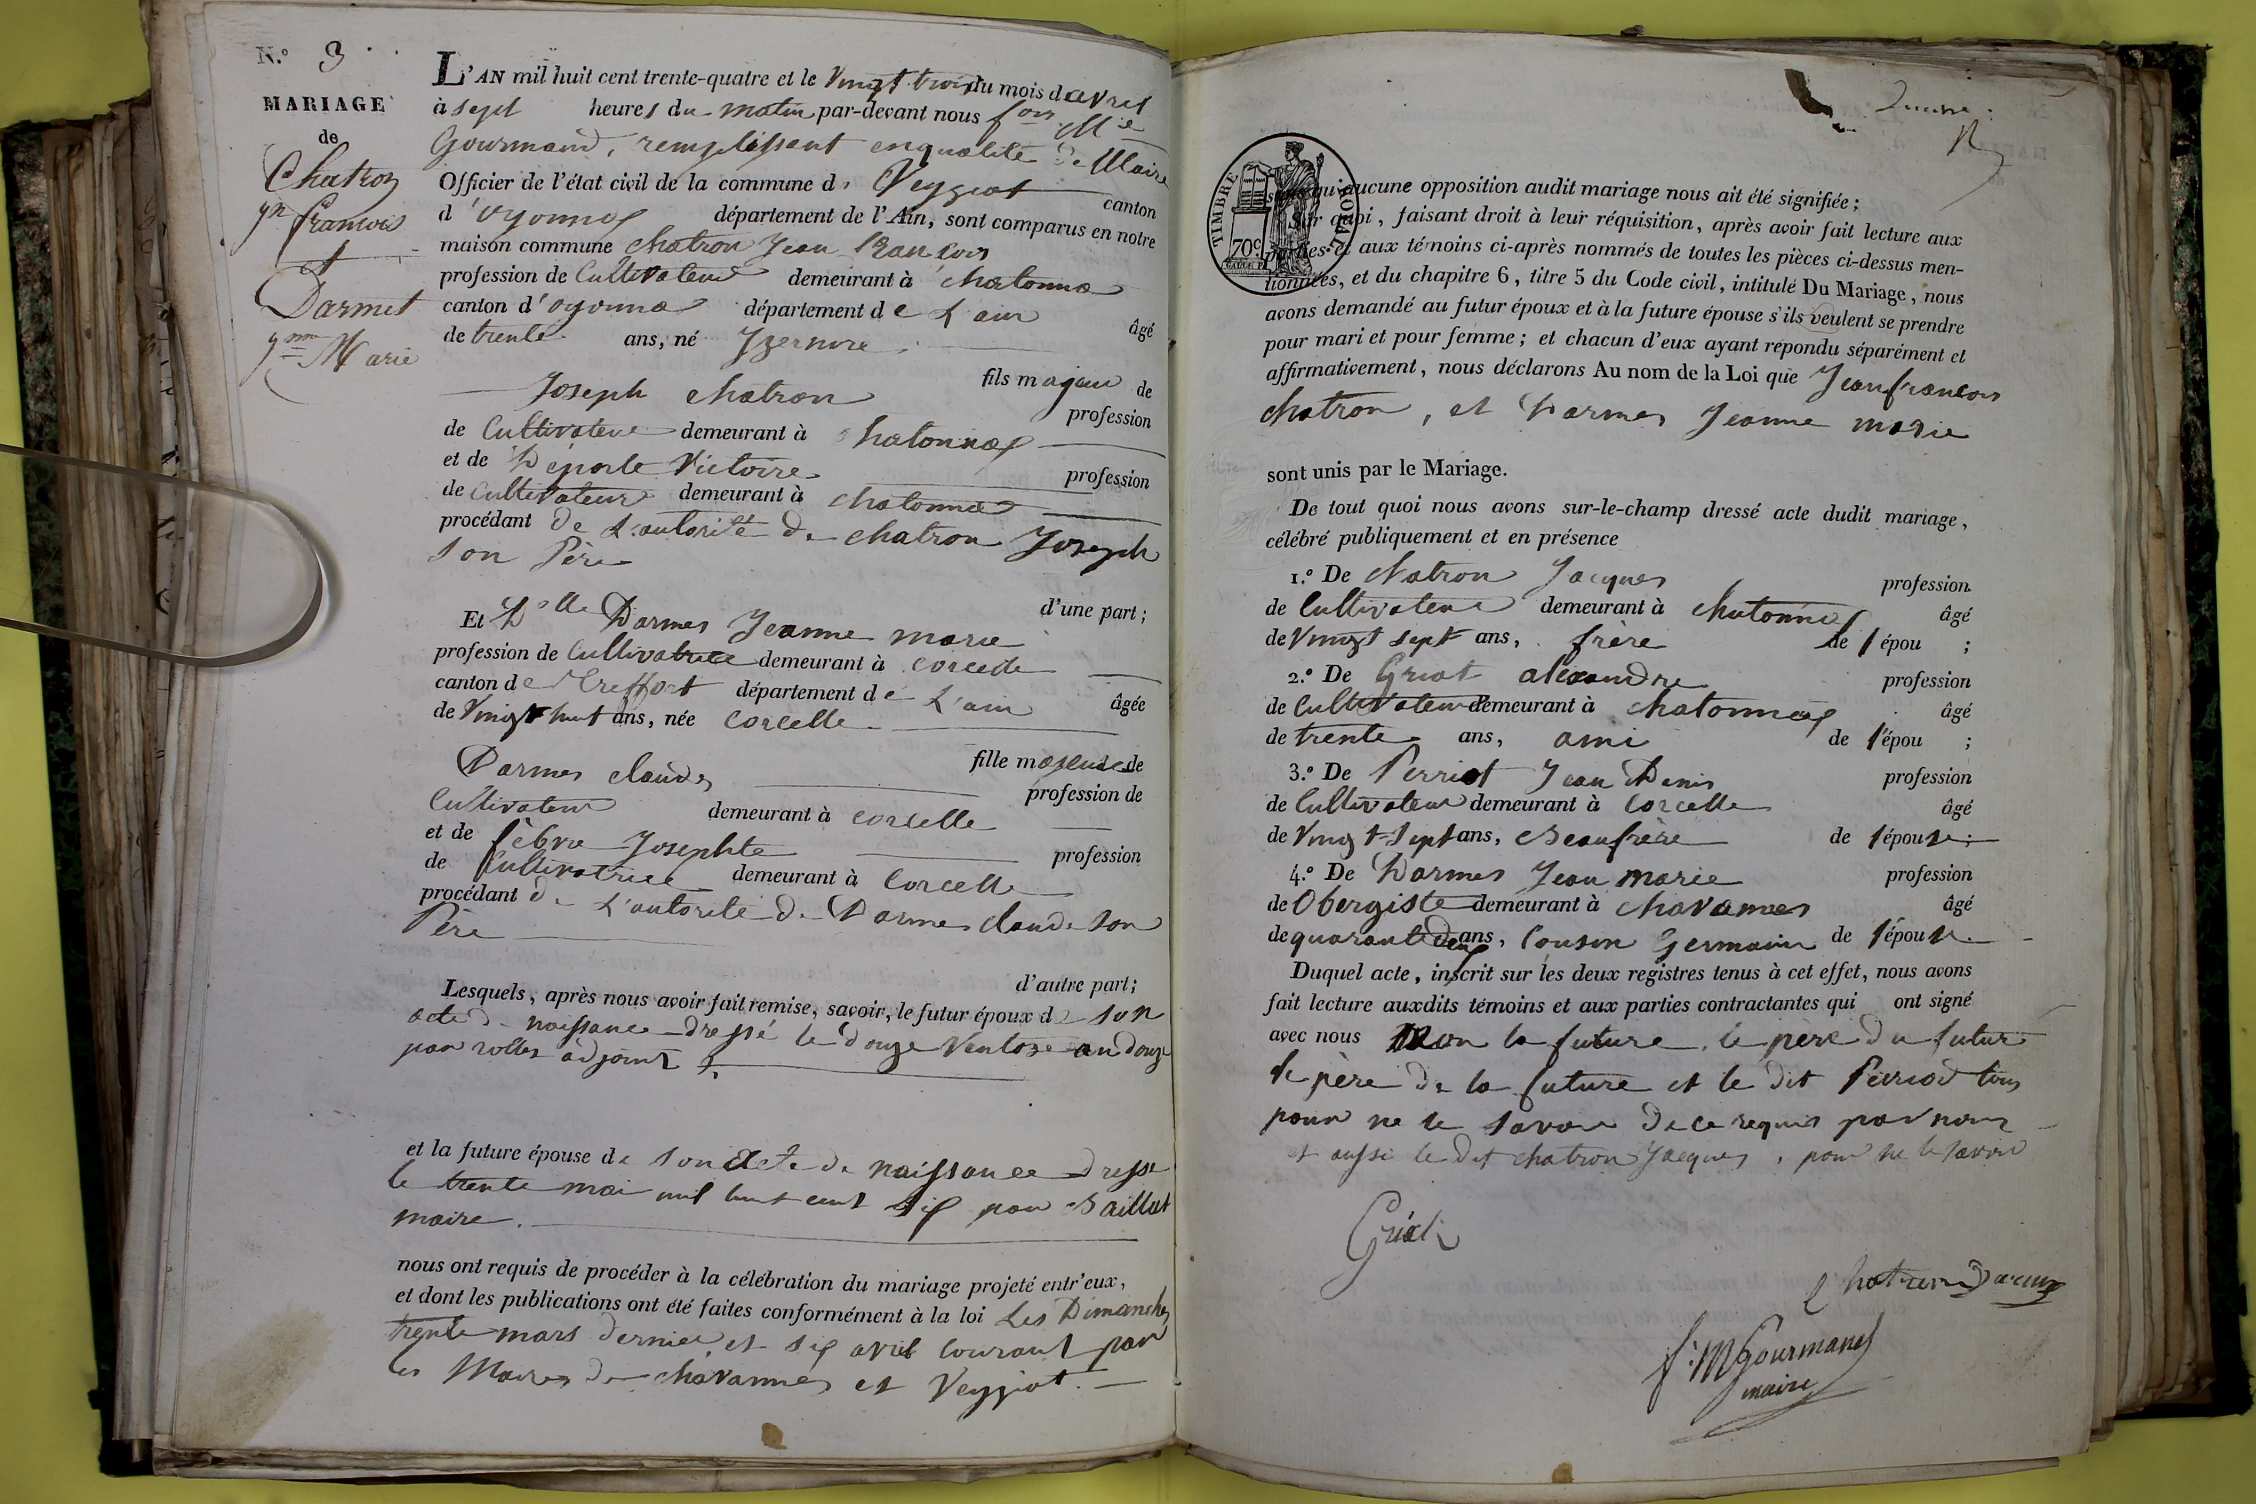 N.º 3
MARIAGE
de
Chatron
Jn
francois
Darmet
Jnne Marie
L'AN mil huit cent trente-quatre et le Vingt trois du mois d'avril
à sept heures du matin par-devant nous fois Mie
Gourmand, remplissant en qualité de Maire
Officier de l'état civil de la commune de Veyziat canton
d'Oyonnax département de l'Ain, sont comparus en notre
maison commune chatron Jean Francois
profession de Cultivateur demeurant à chatonnax
canton d'oyonnax département de L'ain âgé
de trente ans, né Yzernore
fils majeur de
Joseph chatron profession
de Cultivateur demeurant à chatonnax
et de Déporte Victoire profession
de Cultivateur demeurant à chatonnax
procédant de L'autorité de chatron Joseph
son Père
d'une part;
Et Dlle Darmes Jeanne marie
profession de Cultivatrice demeurant à corcelle
canton de Treffort département de L'ain âgée
de Vingt huit ans, née corcelle
fille majeure de
Darmes claude profession de
Cultivateur demeurant à corcelle
et de fèbvre Josephte profession
de Cultivatrice demeurant à Corcelle
procédant de L'autorité de Darmes claude son
Père
d'autre part;
Lesquels, après nous avoir fait remise, savoir, le futur époux de son
acte de naissance dressé le douze Ventose an douze
par rollet adjoint
et la future épouse de son acte de naissance dressé
le trente mai mil huit cent six par Baillat
maire.
nous ont requis de procéder à la célébration du mariage projeté entr'eux,
et dont les publications ont été faites conformément à la loi Les Dimanches
trente mars dernier et six avril courant par
les Maires de chavannes et Veyziat.
TIMBRE ROYAL
70c
sans qu'aucune opposition audit mariage nous ait été signifiée;
Sur quoi, faisant droit à leur réquisition, après avoir fait lecture aux
parties et aux témoins ci-après nommés de toutes les pièces ci-dessus men-
tionnées, et du chapitre 6, titre 5 du Code civil, intitulé Du Mariage, nous
avons demandé au futur époux et à la future épouse s'ils veulent se prendre
pour mari et pour femme; et chacun d'eux ayant répondu séparément et
affirmativement, nous déclarons Au nom de la Loi que Jean francois
chatron, et Darmes Jeanne marie
sont unis par le Mariage.
De tout quoi nous avons sur-le-champ dressé acte dudit mariage,
célébré publiquement et en présence
1.º De Chatron Jacques profession
de Cultivateur demeurant à chatonnax âgé
de Vingt sept ans, frère de l'épou ;
2.º De Griot alexandre profession
de Cultivateur demeurant à chatonnax âgé
de trente ans, ami de l'épou ;
3.º De Perriot Jean Denis profession
de Cultivateur demeurant à corcelle âgé
de Vingt-sept ans, Beaufrère de l'épouse;
4.º De Darmes Jean marie profession
de Obergiste demeurant à chavannes âgé
de quarante deux ans, Cousin Germain de l'épouse.
Duquel acte, inscrit sur les deux registres tenus à cet effet, nous avons
fait lecture auxdits témoins et aux parties contractantes qui ont signé
avec nous non la future, le père du futur
le père de la future et le dit Perriod tous
pour ne le savoir de ce requis par nous
et aussi le dit chatron Jacques, pour ne le savoir
Griot
Chatron Darmes
f. M Gourmand
maire